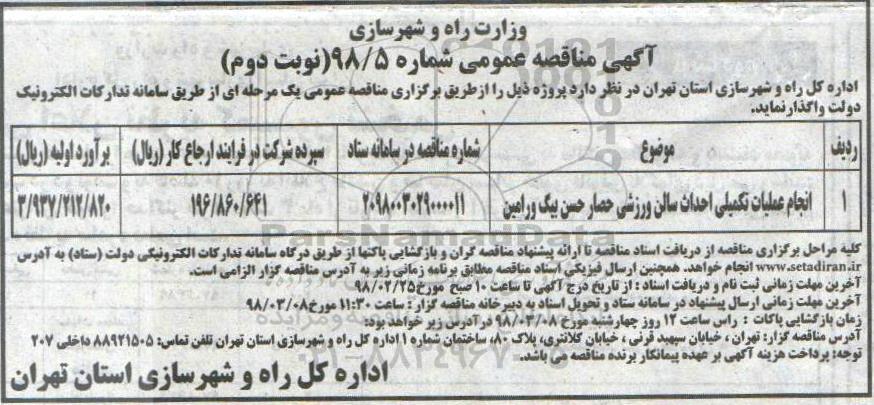 وزارت راه و شهرسازی
آگهی مناقصه عمومی شماره ۹۸/۵(نوبت دوم)
اداره کل راه و شهرسازی استان تهران در نظر دارد پروژه ذیل را ازطریق برگزاری مناقصه عمومی یک مرحله ای از طریق سامانه تدارکات الکترونیک
دولت واگذارنماید.
ردیف موضوع شماره مناقصه در سامانه ستاد سپرده شرکت در فرایند ارجاع کار (ریال) برآورد اولیه (ریال)
۱ انجام عملیات تکمیلی احداث سالن ورزشی حصار حسن بیک ورامین ۲۰۹۸۰۰۳۰۲۹۰۰۰۰۱۱ ۱۹۶/۸۶۰/۶۴۱ ۳/۹۳۷/۲۱۲/۸۲۰
ParsNamadData
کلیه مراحل برگزاری مناقصه از دریافت اسناد مناقصه تا ارائه پیشنهاد مناقصه گران و بازگشایی پاکتها از طریق درگاه سامانه تدارکات الکترونیکی دولت (ستاد) به آدرس
www.setadiran.ir انجام خواهد. همچنین ارسال فیزیکی اسناد مناقصه مطابق برنامه زمانی زیر به آدرس مناقصه گزار الزامی است.
آخرین مهلت زمانی ثبت نام و دریافت اسناد : از تاریخ درج آگهی تا ساعت ۱۰ صبح مورخ ۹۸/۰۲/۲۵
آخرین مهلت زمانی ارسال پیشنهاد در سامانه ستاد و تحویل اسناد به دبیرخانه مناقصه گزار: ساعت ۱۱:۳۰ مورخ ۹۸/۰۳/۰۸
زمان بازگشایی پاکات : راس ساعت ۱۲ روز چهارشنبه مورخ ۹۸/۰۳/۰۸ در آدرس زیر خواهد بود:
آدرس مناقصه گزار: تهران ، خیابان سپهبد قرنی ، خیابان کلانتری، پلاک ۸۰، ساختمان شماره ۱ اداره کل راه و شهرسازی استان تهران تلفن تماس: ۸۸۹۲۱۵۰۵ داخلی ۲۰۷
توجه: پرداخت هزینه آگهی بر عهده پیمانکار برنده مناقصه می باشد.
اداره کل راه و شهرسازی استان تهران